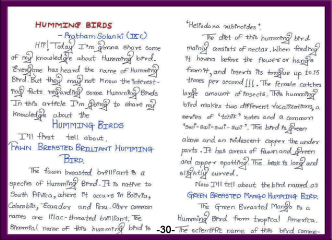 HUMMING BIRDS
- Pratham Solanki (IX C)
HI! Today I'm gonna share some
of my knowledge about Humming bird.
Everyone has heard the name of Humming
Bird. But they may not know the interest-
ing facts regarding some Humming Birds
In this article I'm going to share my
knowledge about the
HUMMING BIRDS
I'll first tell about.
FAWN BREASTED BRILLIANT HUMMING
BIRD.
The fawn breasted brilliant is a
species of Humming Bird. It is native to
South America, where its occurs in Bolivia,
Colombia, Ecuador and Peru. Other common
names are lilac-throated brilliant. The
binomial name of this humming bird is
"Heliodoxa rubinoides".
The diet of this humming bird
mainly consists of nectar. When feeding
it hovers before the flowers or hangs
from it, and inserts its tongue up to 15
times per second !!!. The female catches
large amount of insects. This humming
bird makes two different vocalizations, a
series of "tchik" notes and a common
"swi-swi-swi-swi". The bird is green
above and an iridescent copper the under
parts. It has areas of fawn and green
and copper spotting. The beak is long and
slightly curved.
Now I'll tell about the bird named as
GREEN BREASTED MANGO HUMMING BIRD.
The Green Breasted Mango is a
Humming Bird from tropical America.
The scientific name of this bird comes
-30-